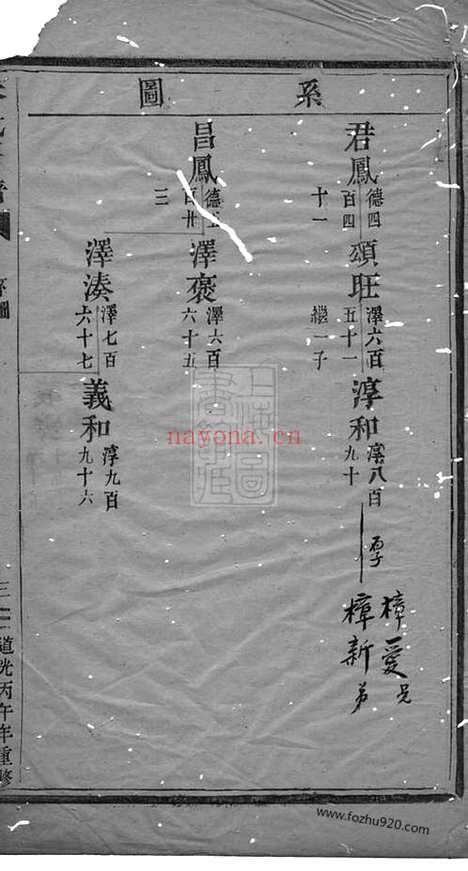 系圖
君鳳
德四
百四
十一
頌旺
澤六百
五十一
繼一子
淳和
淳八百
九十
樟愛兄
樟新弟
昌鳳
三
澤褒
澤六百
六十五
澤湊
澤七百
六十七
義和
淳九百
九十六
三
道光丙午年重修
nayona.cn
www.fozhu920.com